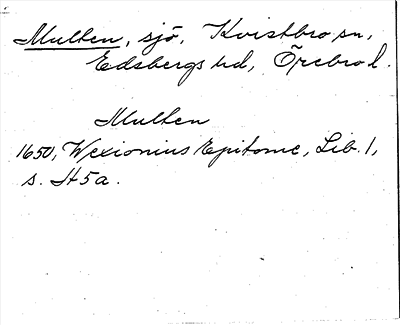 Multen, sjö, Kvistbro sn,
Edsbergs hd, Örebro l.
Multen
1650, Wexionius Epitome, Lib. 1,
s. H5a.